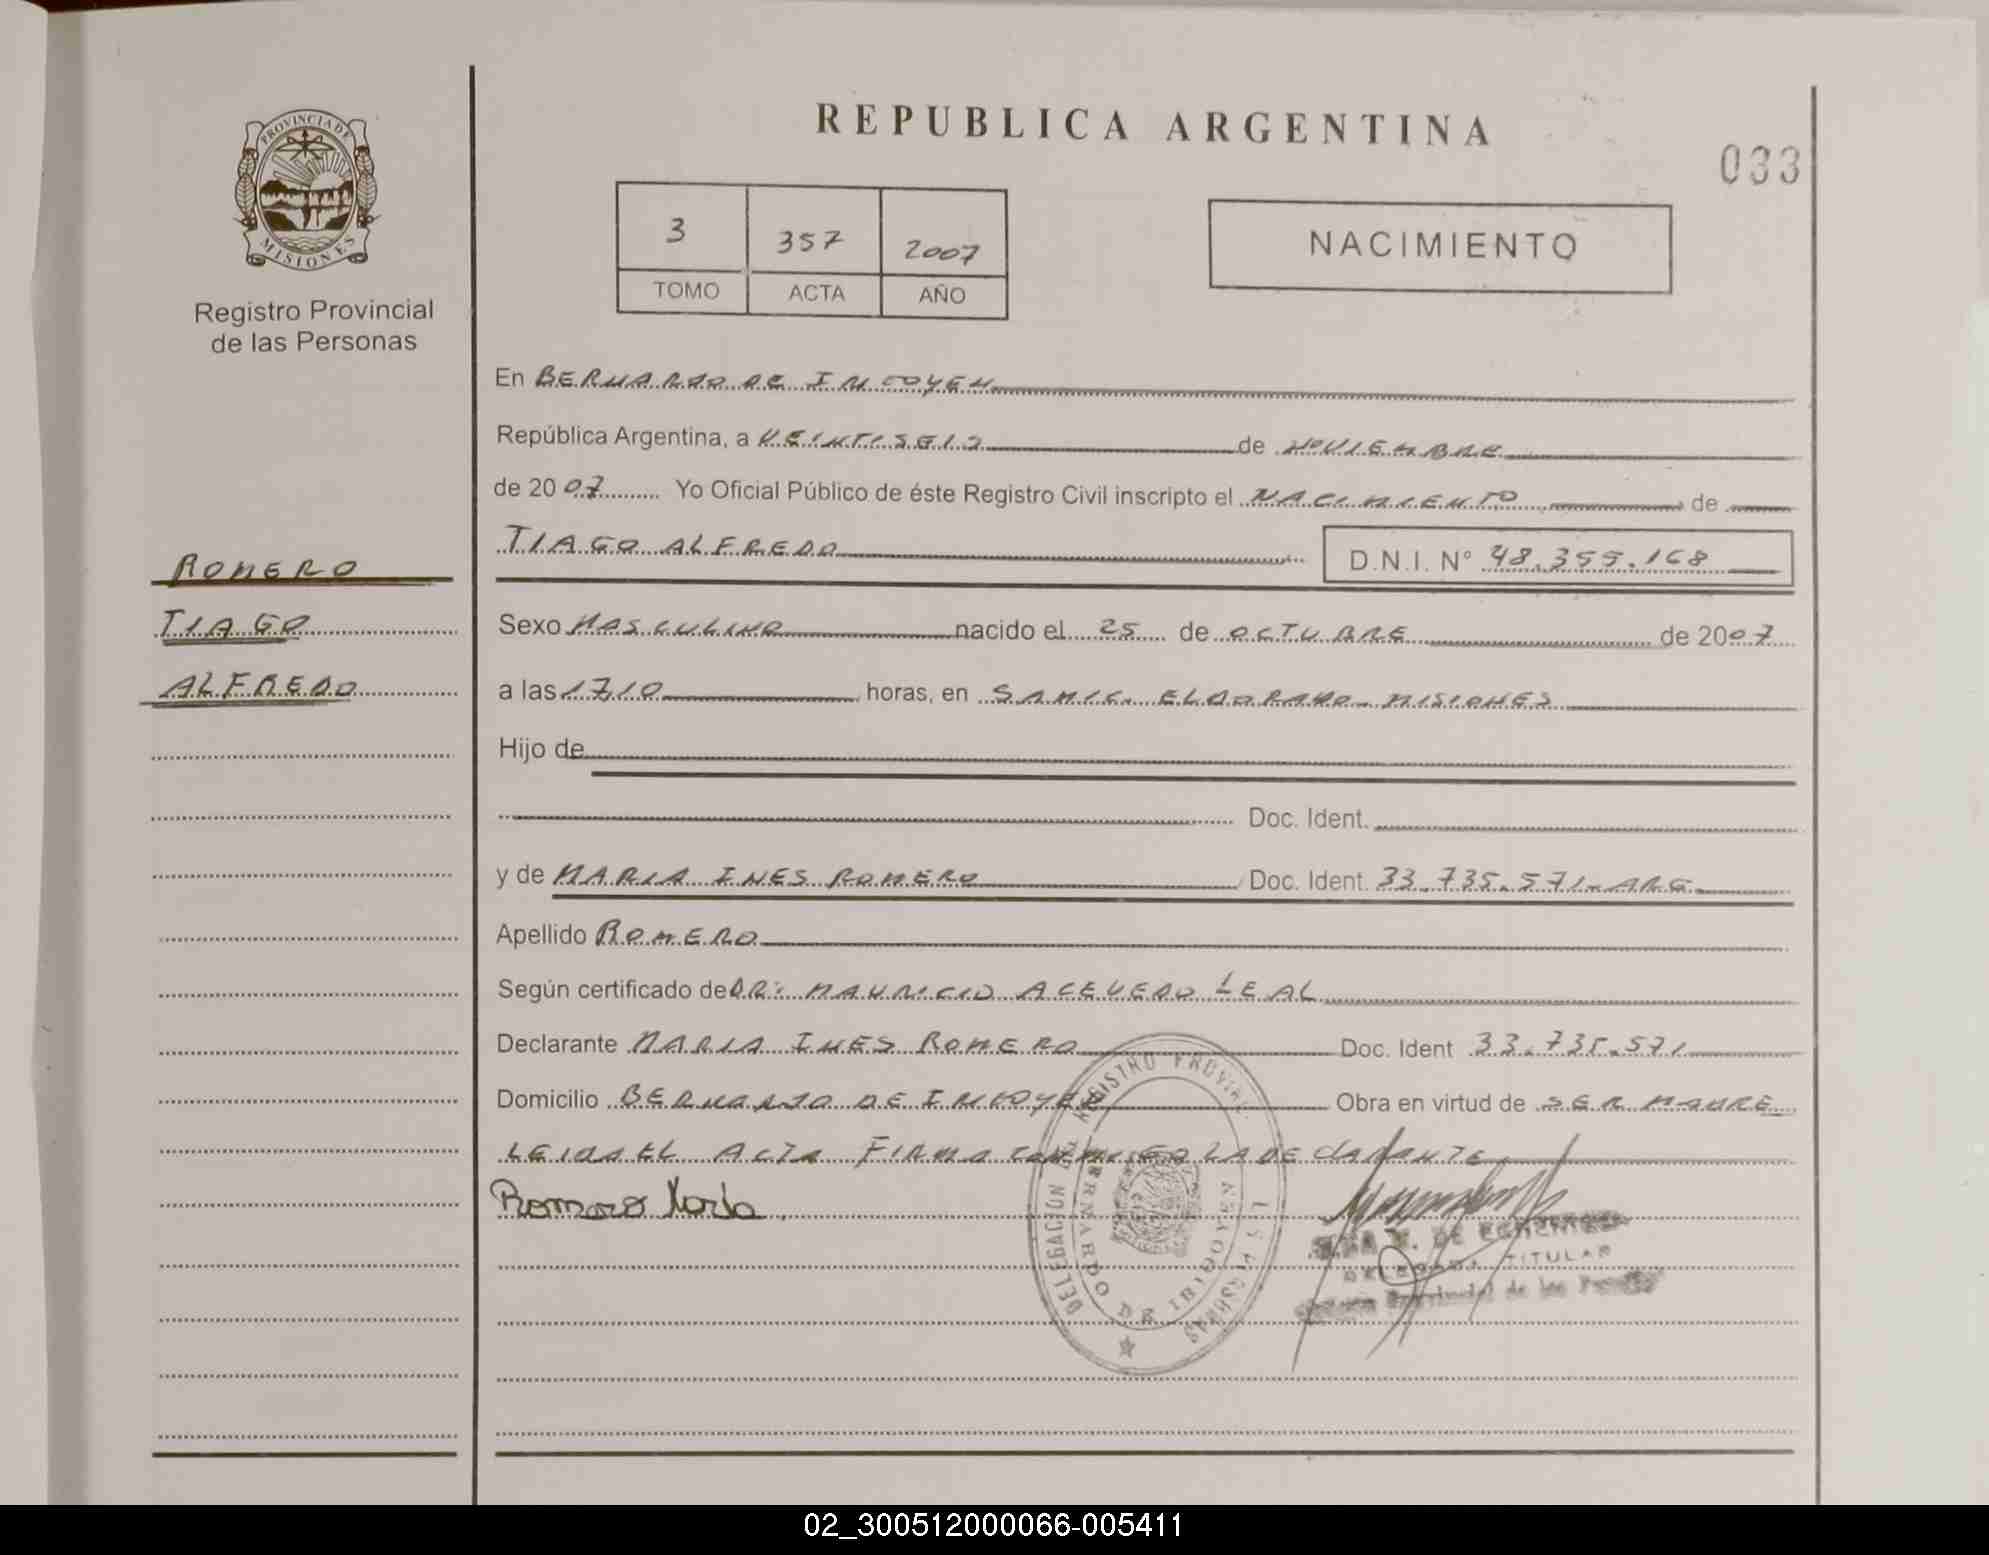 PROVINCIA DE
MISIONES
Registro Provincial
de las Personas
ROMERO
TIAGO
ALFREDO
REPUBLICA ARGENTINA
033
3 357 2007
TOMO ACTA AÑO
NACIMIENTO
En BERNARDO DE IRIGOYEN
República Argentina, a VEINTISEIS de NOVIEMBRE
de 2007 Yo Oficial Público de éste Registro Civil inscripto el NACIMIENTO de
TIAGO ALFREDO D.N.I. N° 48.355.168
Sexo MASCULINO nacido el 25 de OCTUBRE de 2007
a las 17,10 horas, en SAMIC. ELDORADO. MISIONES
Hijo de
Doc. Ident.
y de MARIA INES ROMERO Doc. Ident. 33.735.571. ARG.
Apellido ROMERO
Según certificado de DR: MAURICIO ACEVEDO LEAL
Declarante MARIA INES ROMERO Doc. Ident 33.735.571
Domicilio BERNARDO DE IRIGOYEN Obra en virtud de SER MADRE
LEIDA EL ACTA FIRMA CONMIGO LA DECLARANTE
Romero María
DELEGACION REGISTRO PROVINCIAL PERSONAS
BERNARDO DE IRIGOYEN
DELEGADA TITULAR
Provincial de las
02_300512000066-005411